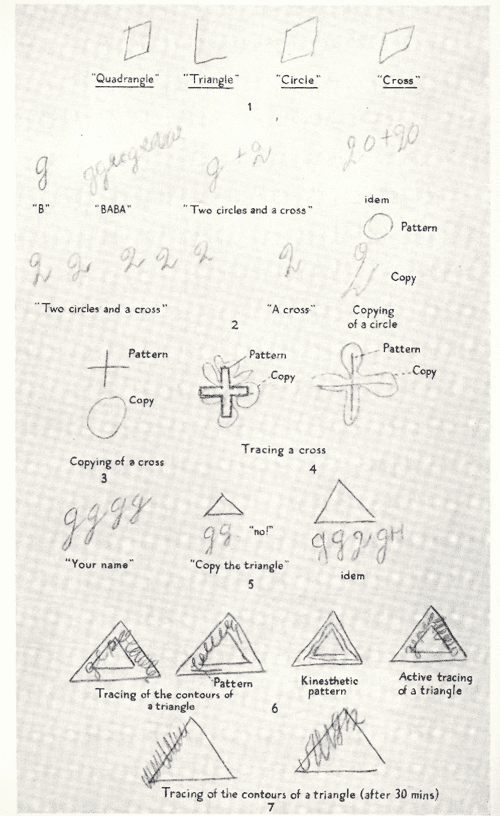 "Quadrangle" "Triangle" "Circle" "Cross"
1
g
20+20
"B" "BABA" "Two circles and a cross"
idem
Pattern
2 2 2 2 2 2
Copy
"Two circles and a cross" "A cross" Copying
of a circle
2
Pattern Pattern Pattern
Copy Copy Copy
Tracing a cross
Copying of a cross 4
3
gggg
gg "no!"
"Your name" "Copy the triangle" idem
5
Pattern Kinesthetic pattern Active tracing
of a triangle
Tracing of the contours of
a triangle
6
Tracing of the contours of a triangle (after 30 mins)
7